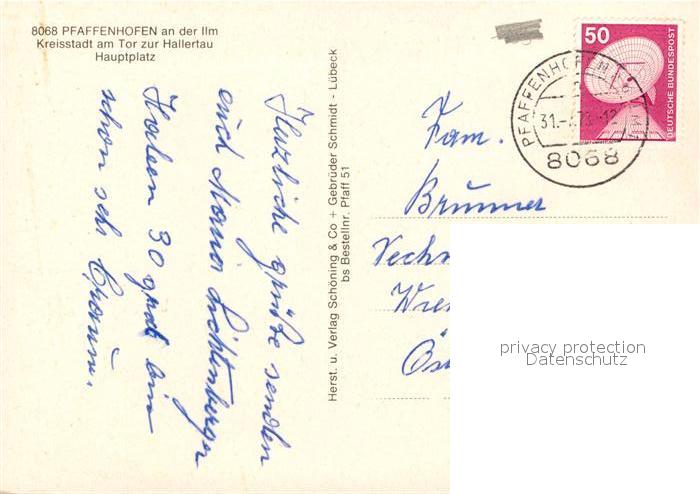 8068 PFAFFENHOFEN an der Ilm
Kreisstadt am Tor zur Hallertau
Hauptplatz
Herzliche grüße senden
euch Maria Lichtenberger
Haben 30 grad bin
schon sehr braun.
Herst. u. Verlag Schöning & Co + Gebrüder Schmidt - Lübeck
bs Bestellnr. Pfaff 51
50
DEUTSCHE BUNDESPOST
PFAFFENHOFEN
8068
Fam.
Brunner
privacy protection
Datenschutz